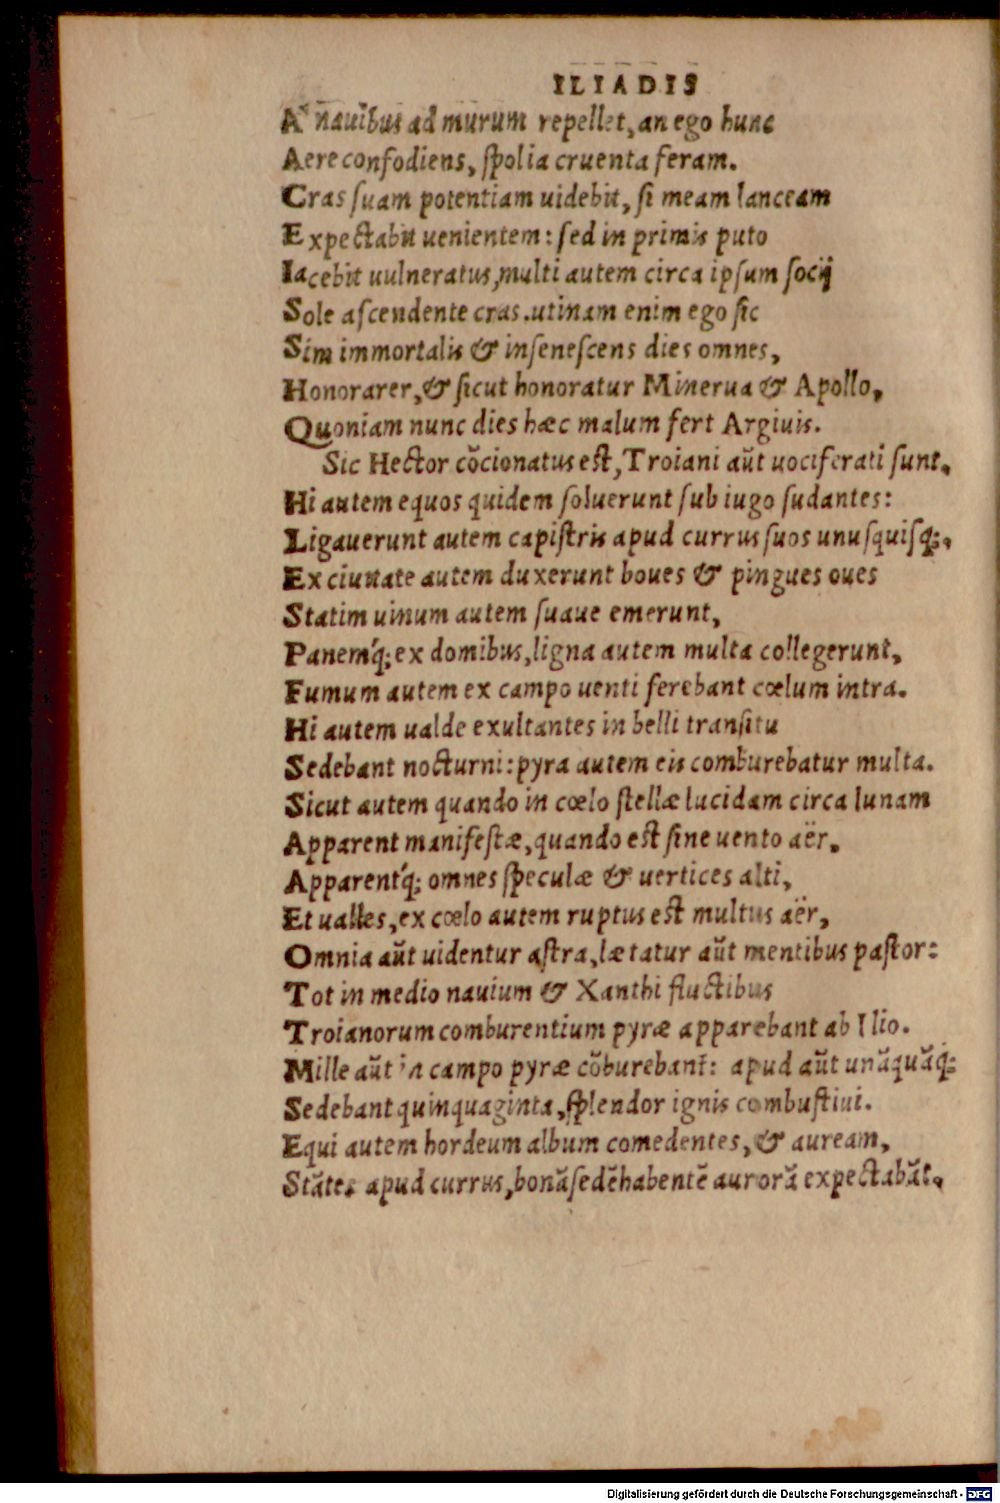 ILIADIS
A' nauibus ad murum repellet, an ego hunc
Aere confodiens, ſpolia cruenta feram.
Cras ſuam potentiam uidebit, ſi meam lanceam
Expectabit uenientem: ſed in primis puto
Iacebit uulneratus, multi autem circa ipſum ſocij
Sole aſcendente cras. utinam enim ego ſic
Sim immortalis & inſeneſcens dies omnes,
Honorarer, & ſicut honoratur Minerua & Apollo,
Quoniam nunc dies hæc malum fert Argiuis.
Sic Hector cōcionatus eſt, Troiani aūt uociferati ſunt.
Hi autem equos quidem ſoluerunt ſub iugo ſudantes:
Ligauerunt autem capiſtris apud currus ſuos unuſquiſq;.
Ex ciuitate autem duxerunt boues & pingues oues
Statim uinum autem ſuaue emerunt,
Panemq́; ex domibus, ligna autem multa collegerunt,
Fumum autem ex campo uenti ferebant cœlum intra.
Hi autem ualde exultantes in belli tranſitu
Sedebant nocturni: pyra autem eis comburebatur multa.
Sicut autem quando in cœlo ſtellæ lucidam circa lunam
Apparent manifeſtæ, quando eſt ſine uento aër.
Apparentq́; omnes ſpeculæ & uertices alti,
Et ualles, ex cœlo autem ruptus eſt multus aër,
Omnia aūt uidentur aſtra, lætatur aūt mentibus paſtor:
Tot in medio nauium & Xanthi fluctibus
Troianorum comburentium pyræ apparebant ab Ilio.
Mille aūt in campo pyræ cōburebant: apud aūt unāquāq;
Sedebant quinquaginta, ſplendor ignis combuſtiui.
Equi autem hordeum album comedentes, & auream,
Stātes apud currus, bonā ſedē habentē aurorā expectabāt.
Digitalisierung gefördert durch die Deutsche Forschungsgemeinschaft - DFG